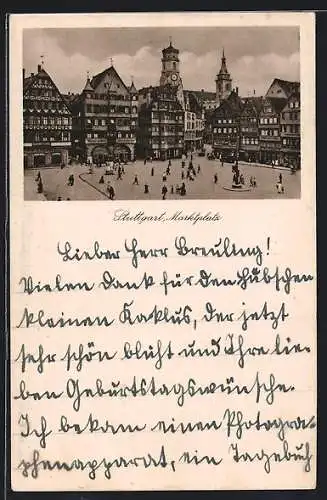 Stuttgart, Marktplatz
Lieber Herr Breuling!
Vielen Dank für den hübschen
kleinen Kaktus, der jetzt
sehr schön blüht und Ihre lie-
ben Geburtstagswünsche.
Ich bekam einen Photogra-
phenapparat, ein Tagebuch